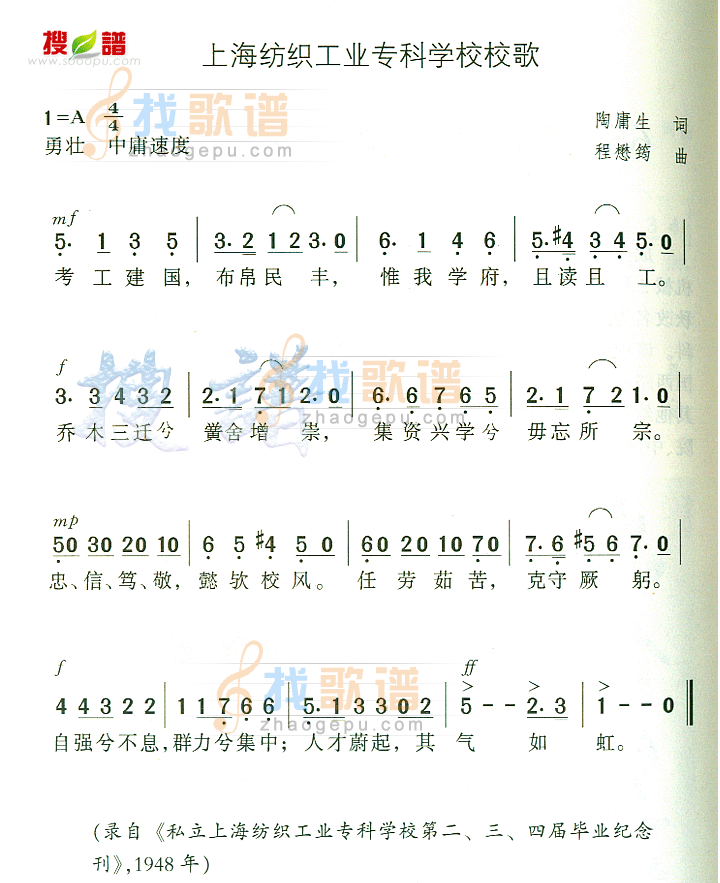 搜譜
www.sooopu.com
上海纺织工业专科学校校歌
1=A 4/4
陶庸生 词
勇壮 中庸速度
程懋筠 曲
找歌谱
zhaogepu.com
mf
5. 1 3 5 | 3.2 1 2 3.0 | 6. 1 4 6 | 5.#4 3 4 5.0 |
考工建国，布帛民丰，惟我学府，且读且工。
f
3. 3 4 3 2 | 2.1 7 1 2.0 | 6. 6 7 6 5 | 2.1 7 2 1.0 |
乔木三迁兮黉舍增崇，集资兴学兮毋忘所宗。
搜譜
找歌谱
zhaogepu.com
mp
50 30 20 10 | 6 5 #4 5 0 | 60 20 10 70 | 7.6 #5 6 7.0 |
忠、信、笃、敬，懿欤校风。任劳茹苦，克守厥躬。
找歌谱
zhaogepu.com
f ff
4 4 3 2 2 | 1 1 7 6 6 | 5.1 3 3 0 2 | 5 - - 2.3 | 1 - - 0 ‖
自强兮不息，群力兮集中；人才蔚起，其气如虹。
(录自《私立上海纺织工业专科学校第二、三、四届毕业纪念
刊》，1948年)